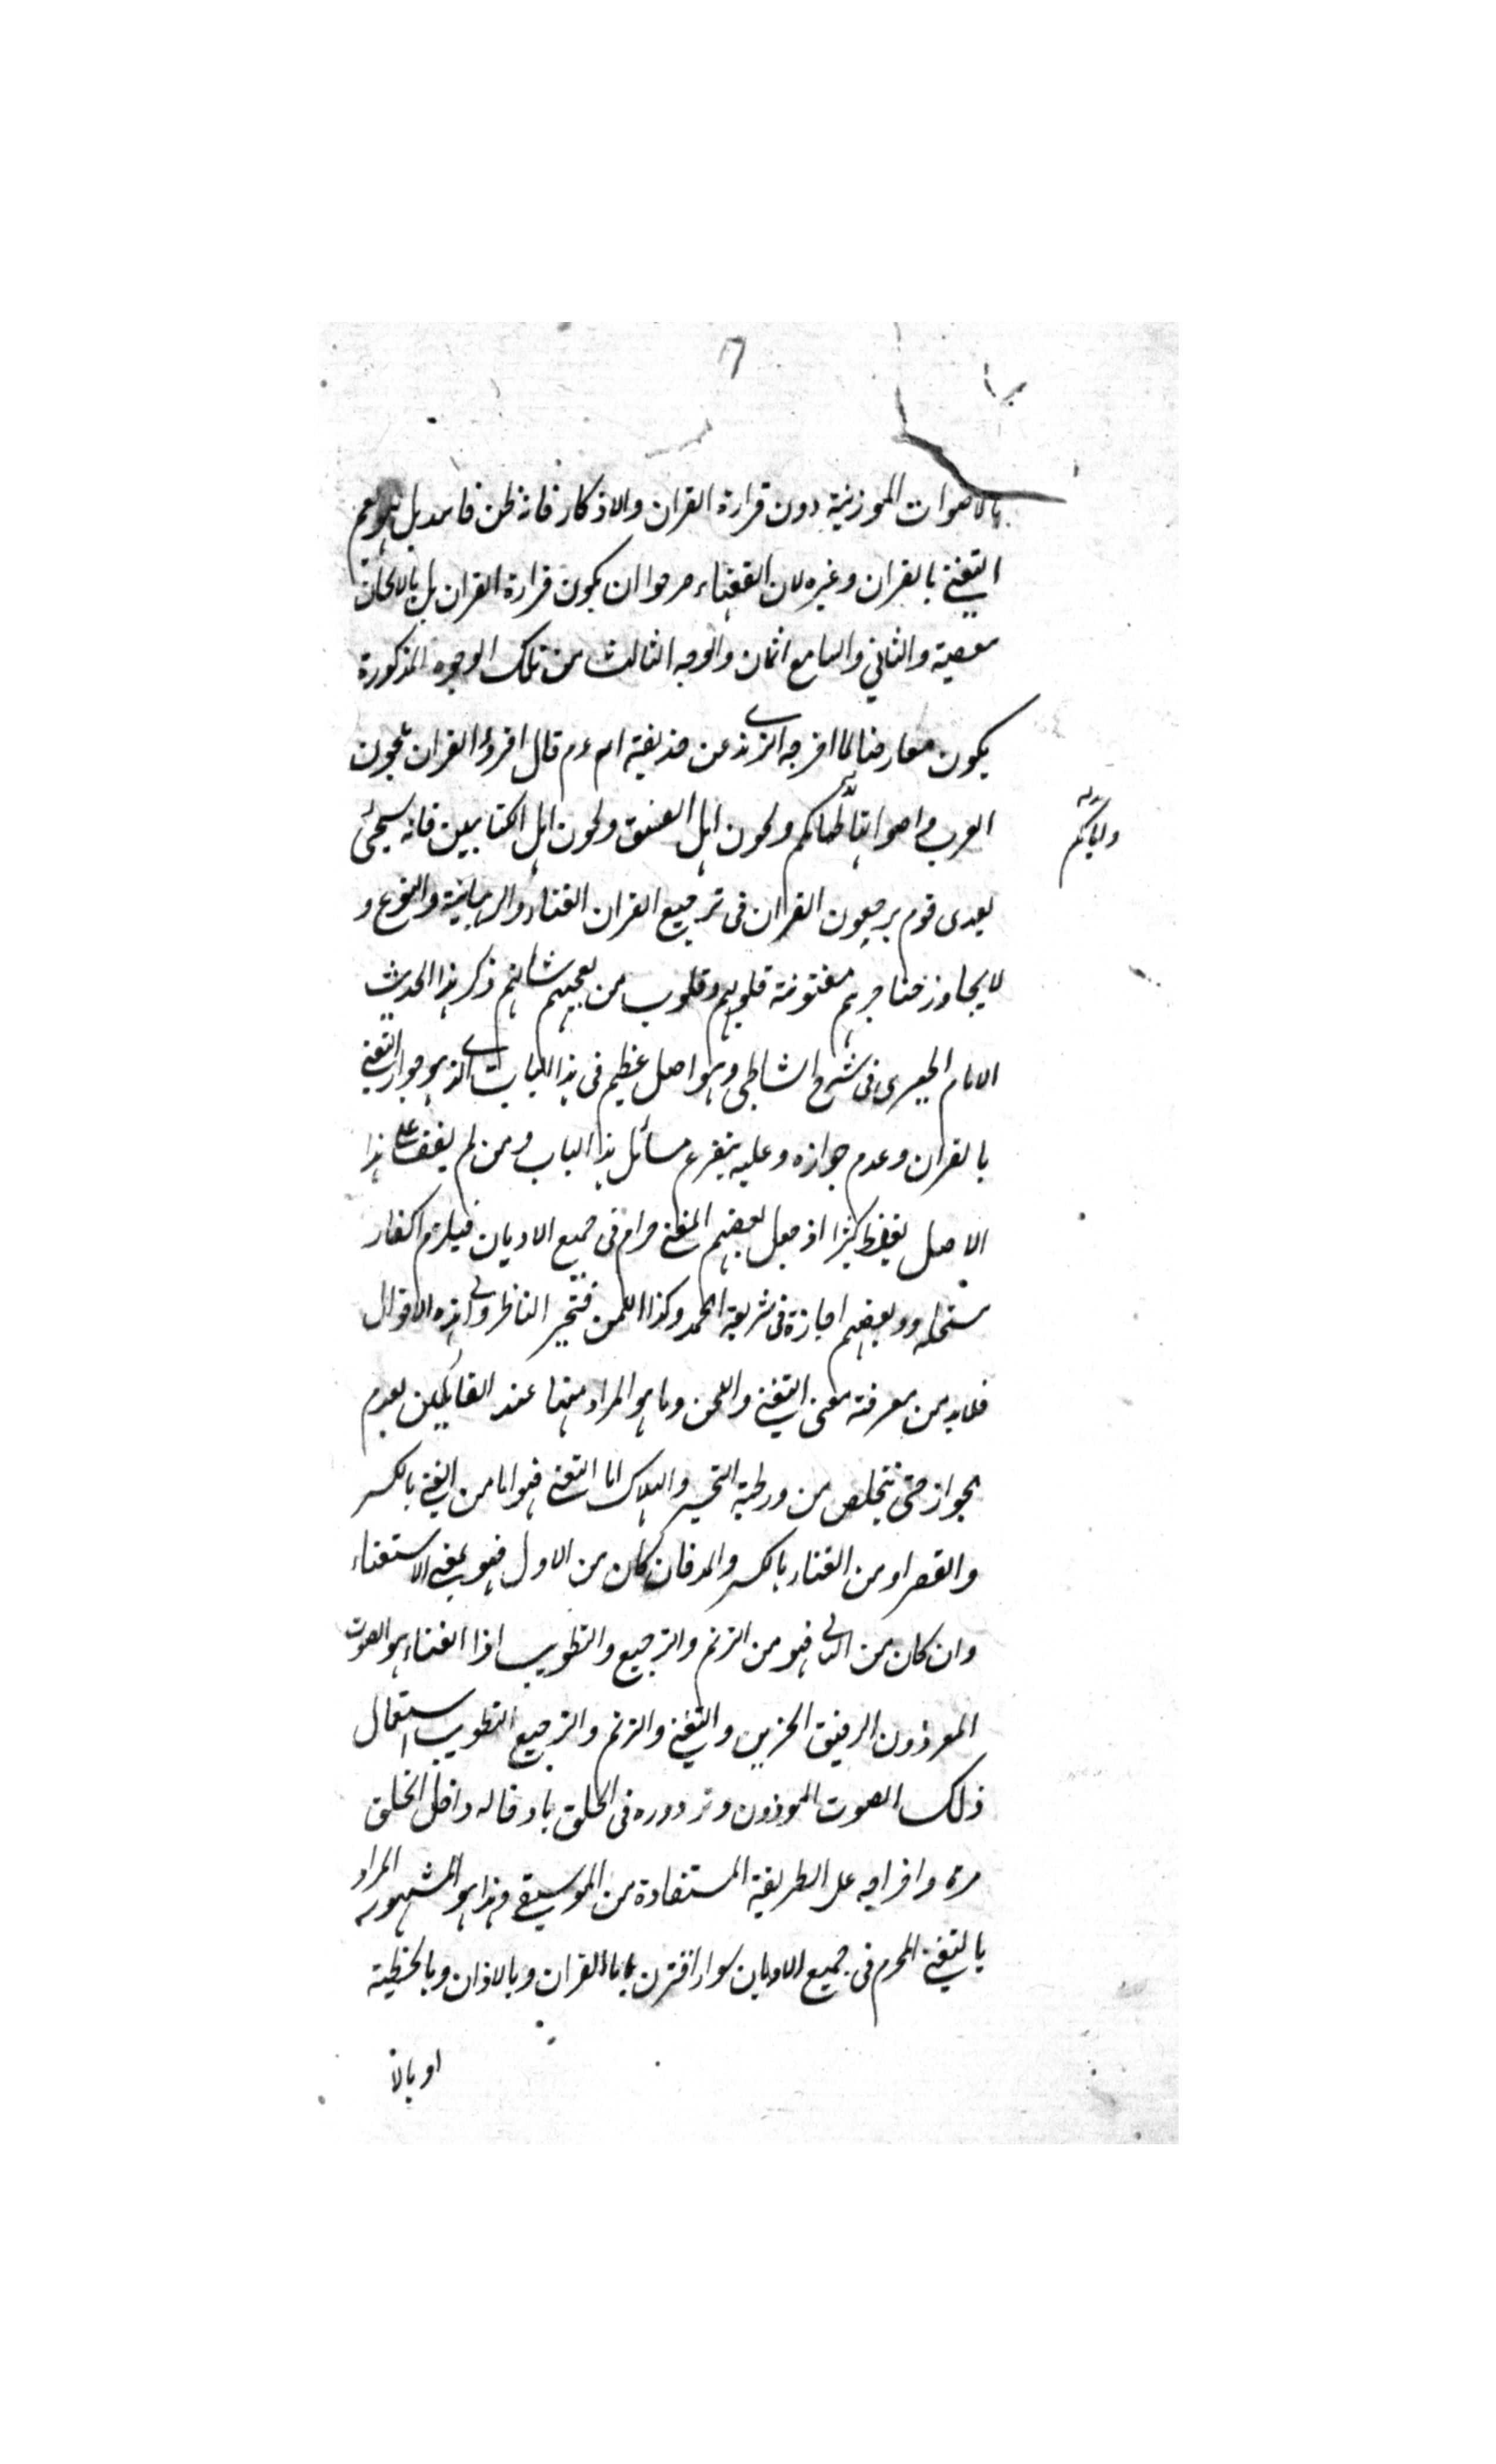 ٦
بالاصوات الموزنية دون قراءة القران والاذكار فانه ظن فاسد بل هو يعم
التغني بالقران وغيره لان الفقهاء صرحوا ان يكون قراءة القران بل بالالحان
معصية والثاني والسامع اثمان والوجه الثالث من تلك الوجوه المذكورة
يكون معارضا لما اخرجه الترمذي عن حذيفة انه ءم قال اقرؤا القران بلحون
العرب و اصواتها واياكم ولحون اهل الفسق ولحون اهل الكتابين فانه سيجئ
واياكم
بعدى قوم يرجعون القران فى ترجيع القران الغناء والرهبانية والنوع و
لا يجاوز حناجرهم مفتونة قلوبهم وقلوب من يعجبهم شانهم ذكر هذا الحديث
الامام الجعبرى فى شرح الشاطبى وهو اصل عظيم فى هذا الباب الذي هو جواز التغني
بالقران وعدم جوازه وعليه يتفرع مسائل هذا الباب ومن لم يقف على هذا
الاصل يغلط كثيرا اذ جعل بعضهم التغني حرام فى جميع الاديان فيلزم اكفار
مستحله وبعضهم اجازة فى شريعة احمد وكذا اللحن فتحير الناظر فى هذه الاقوال
فلابد من معرفة معنى التغني واللحن وما هو المراد منهما عند القايلين بعدم
الجواز حتى يتخلص من ورطة التحير والهلاك اما التغني فهو اما من الغني بالكسر
والقصر او من الغناء بالكسر والمد فان كان من الاول فهو بمعنى الاستغناء
وان كان من الثاني فهو من الترنم والترجيع والتطريب اذا الغناء هو الصوت
الموزون الرقيق الحزين والتغني والترنم والترجيع التطريب استعمال
ذلك الصوت الموزون وتردوره فى الحلق بادخاله داخل الحلق
مرة واخراجه على الطريقة المستفادة من الموسيقى وهذا هو المشهور المراد
بالتغني المحرم فى جميع الاديان سواء اقترن بالقران وبالاذان وبالخطبة
او بالا